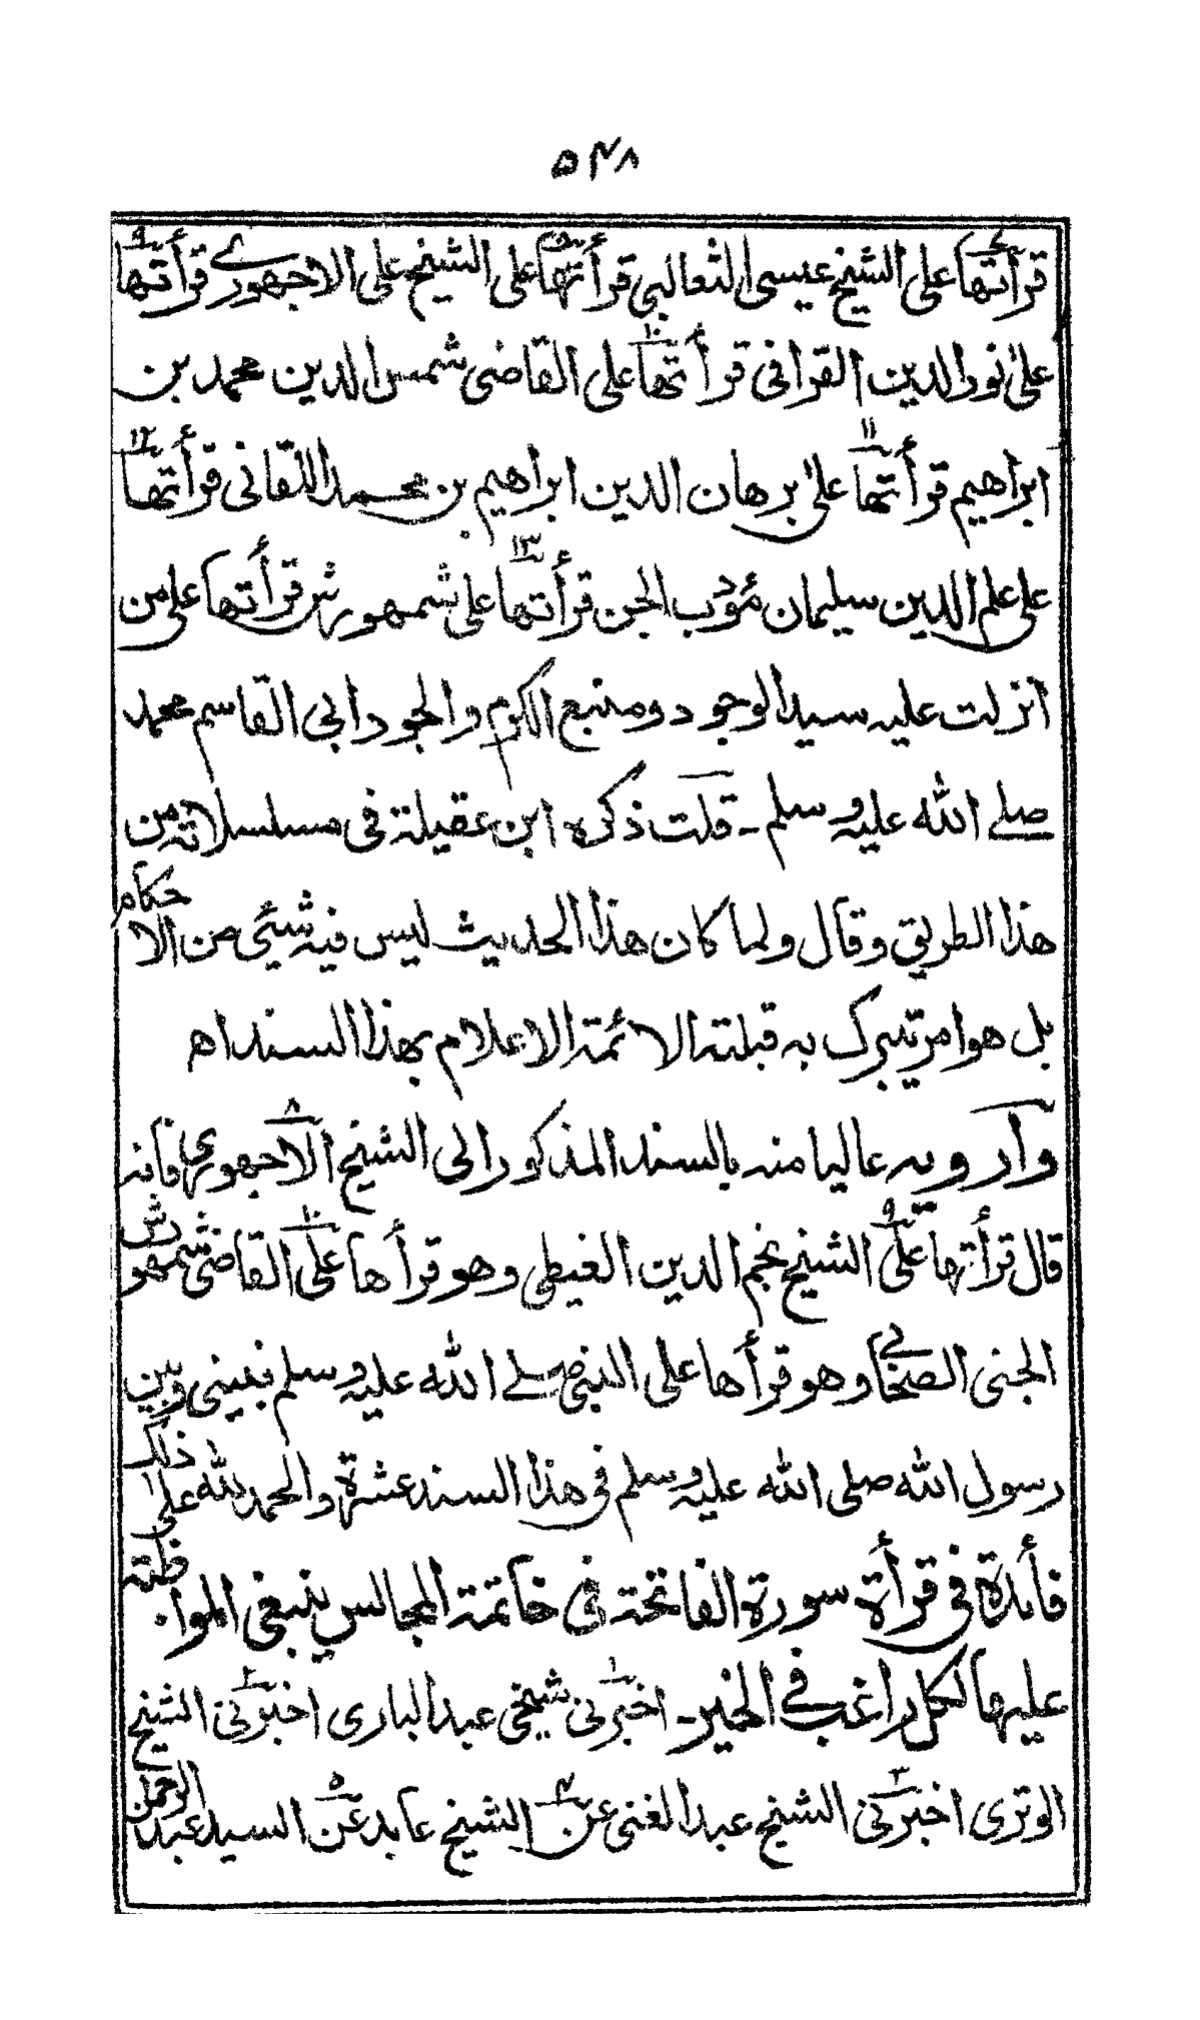 ۵۴۸
قرأتها على الشيخ عيسى الثعالبي قرأتها على الشيخ على الاجهوري قرأتها
على نور الدين القرافى قرأتها على القاضى شمس الدين محمد بن
ابراهيم قرأتها على برهان الدين ابراهيم بن محمد اللقانى قرأتها
على علم الدين سليمان مؤدب الجن قرأتها على شمهورش قرأتها على من
انزلت عليه سيد الوجود ومنبع الكرم والجود ابى القاسم محمد
صلے الله عليه وسلم ـ قلت ذكره ابن عقيلة فى مسلسلاته من
هذا الطريق وقال ولما كان هذا الحديث ليس فيه شئى من الاحكام
بل هو امر يتبرك به قبلته الائمة الاعلام بهذا السند اه
وآرويه عاليا منه بالسند المذكور الى الشيخ الاجهورى فانه
قال قرأتها على الشيخ نجم الدين الغيطى وهو قرأها على القاضى شمهورش
الجنى الصحابي وهو قرأها على النبى صلے الله عليه وسلم فبينى وبين
رسول الله صلى الله عليه وسلم فى هذا السند عشرة والحمد لله على ذلك
فائدة فى قرأة سورة الفاتحة فى خاتمة المجالس ينبغى المواظبته
عليها لكل راغب فے الخير ـ اخبرنى شيخى عبد البارى اخبرنى الشيخ
الوترى اخبرنى الشيخ عبد الغنى عن الشيخ عابد عن السيد عبد الرحمن